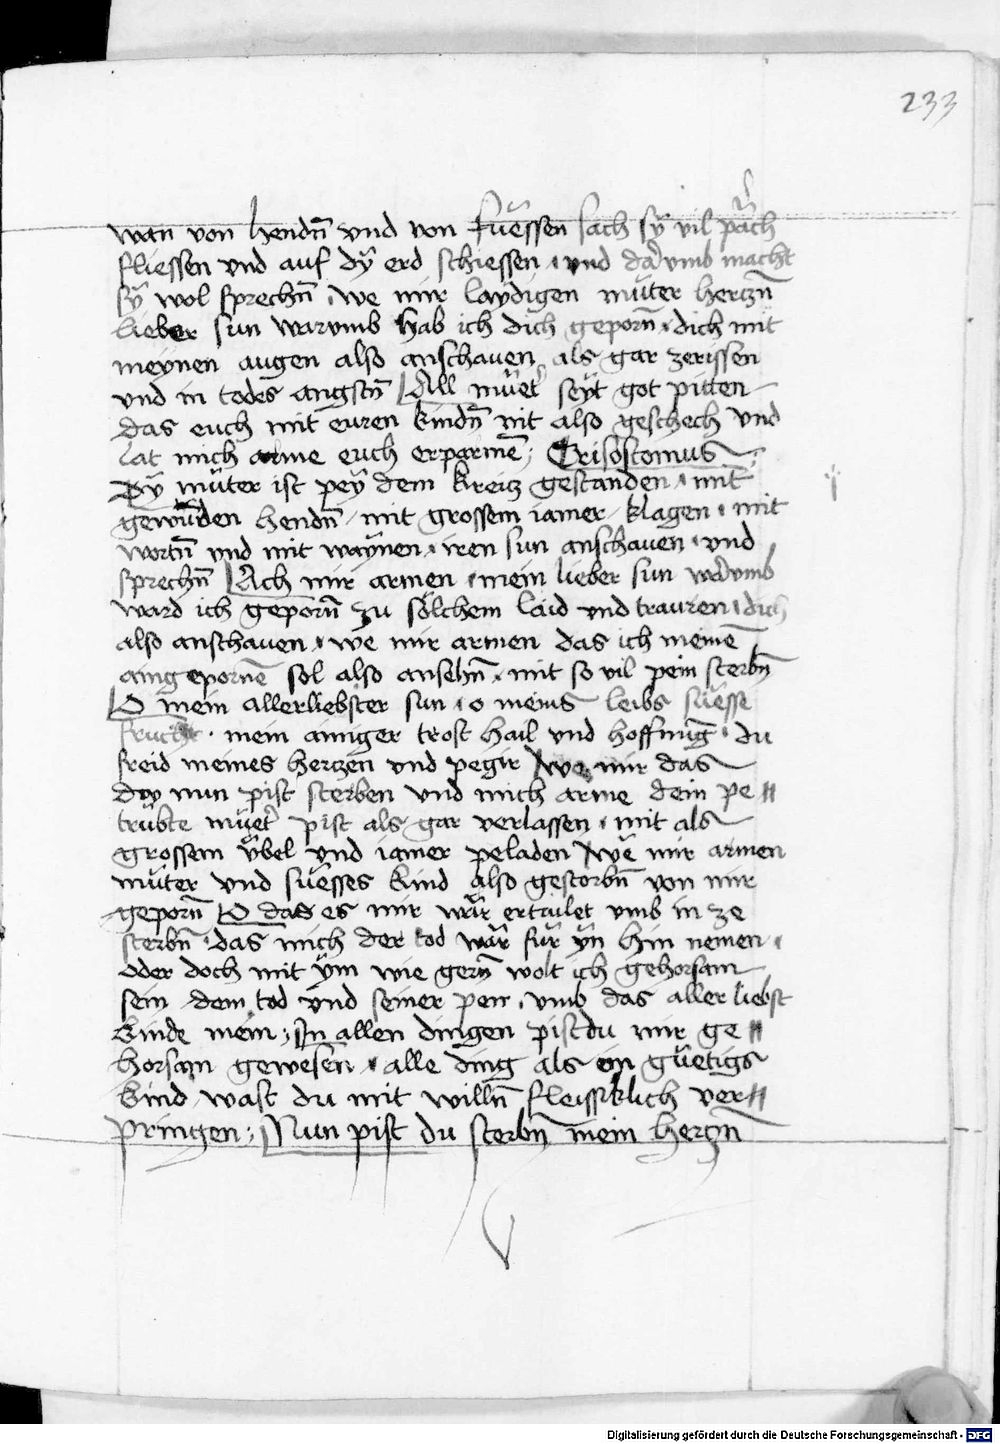 233
wan von hendn̄ vnd von fuͤessen sach sÿ vil pāch
fliessen vnd auf dÿ erd schiessen · vnd darvmb macht
sÿ wol sprechn̄ · we mir laydigen muͤter hertzn̄
lieber sun warvmb hab ich dich geporn̄ · dich mit
meynen augen also anschauen als gar zerissen
vnd in todes angstn̄ All muͤet' seÿt got pitten
das euch mit euren kindn̄ nit also geschech vnd
lat mich arme euch erparmē ; Crisostomus
Dÿ muͤter ist peÿ dem kreitz gestanden · mit
gewunden hendn̄ / mit grossem iamer / klagen · mit
wortn̄ vnd mit waÿnen · iren sun anschauen · vnd
sprechn̄ Ach mir armen · mein lieber sun warvmb
ward ich geporn̄ zu soͤlchem laid vnd trauren · dich
also anschauen · we mir armen das ich meinē
aingepornē sol also ansehn̄ · mit so vil pein sterbn̄
O mein allerliebster sun · o meins leibs suͤesse
frucht · mein ainiger trost hail vnd hoffnūg · du
freid meines hertzen vnd pegir We mir das
du nun pist sterben vnd mich arme dein pe //
truͤbte muͤet' pist als gar verlassen · mit als
grossem uͤbel vnd iamer peladen We mir armen
muͤter vnd suͤesses kind also gestorbn̄ von mir
geporn̄ O das es mir waͤr ertailet vmb in ze
sterbn̄ · das mich der tod waͤr fuͤr ÿn hin nemen ·
oder doch mit ÿm wie gern̄ wolt ich gehorsam
sein dem tod vnd seiner pein · vmb das aller liebst
kinde mein ; In allen dingen pist du mir ge //
horsam gewesen · alle ding als ein guͤetigs
kind wast du mit willn̄ fleissiklich ver //
pringen ; Nun pist du sterbn̄ mein hertzn̄
Digitalisierung gefördert durch die Deutsche Forschungsgemeinschaft - DFG